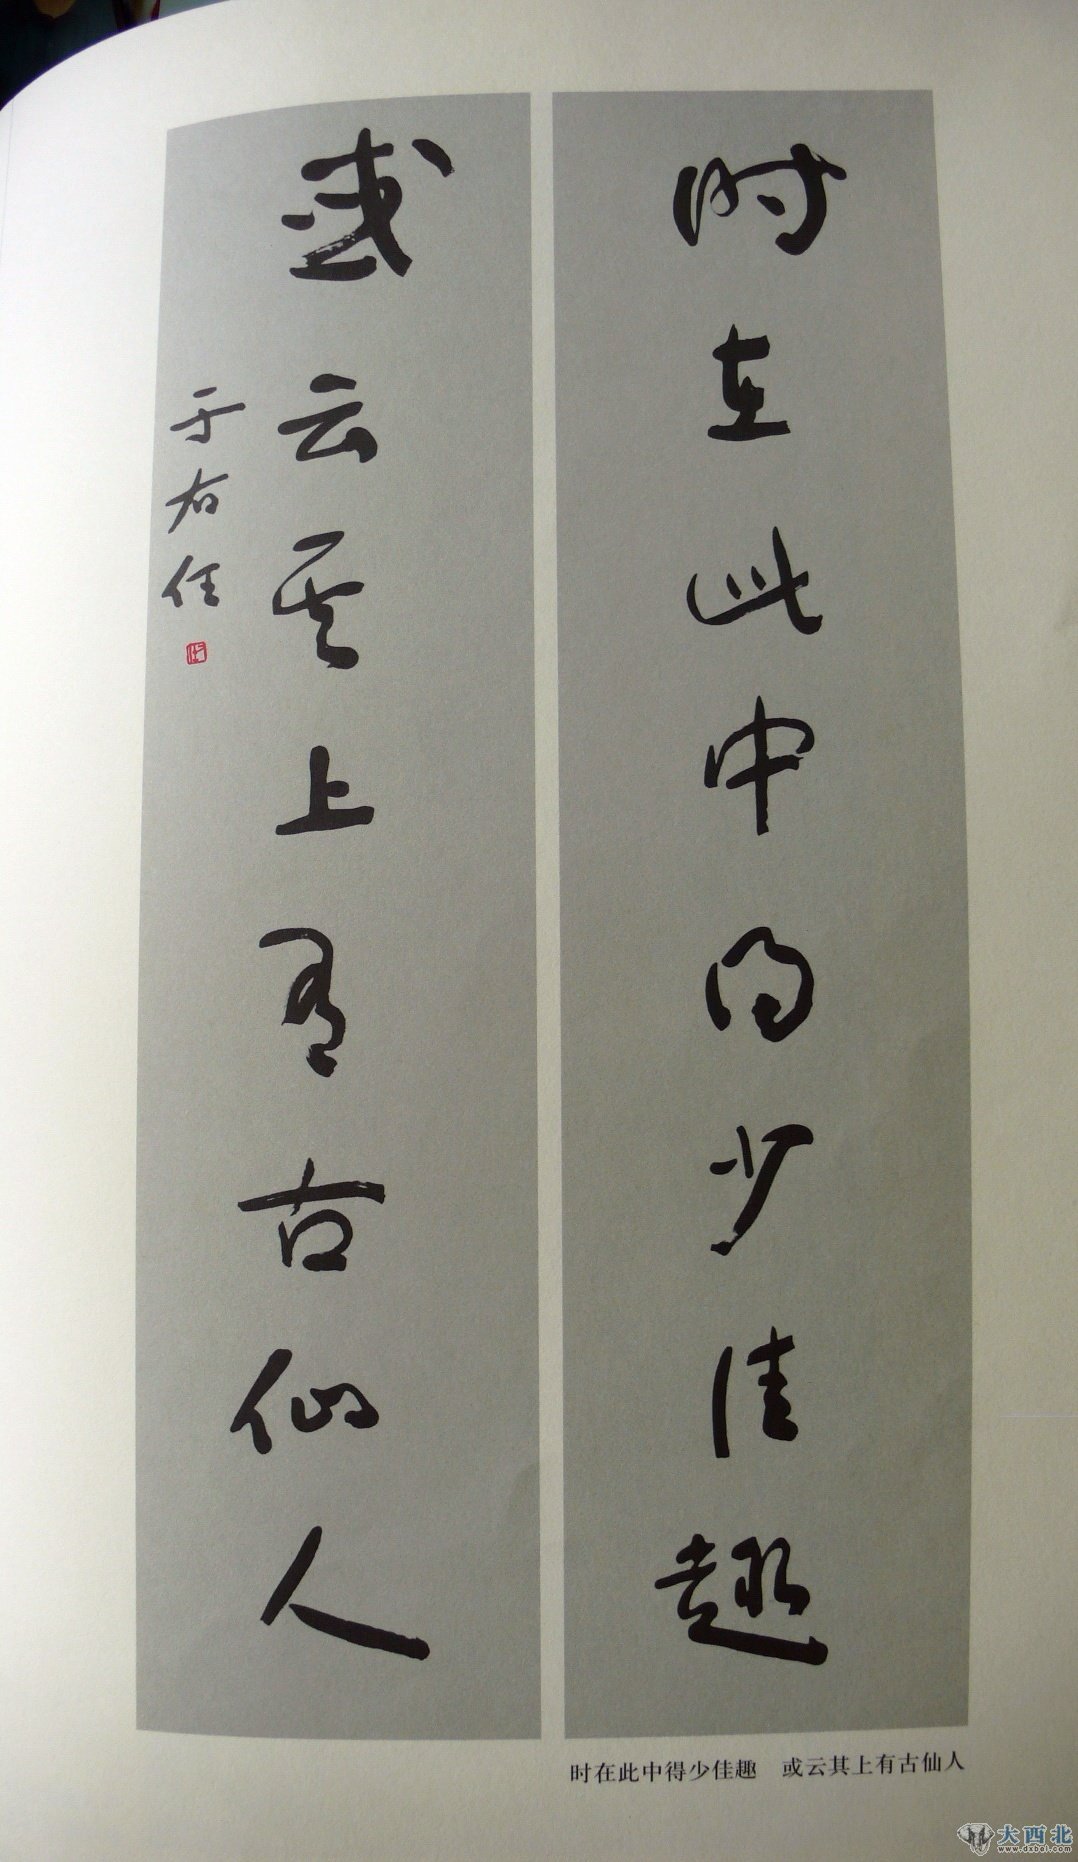 时在此中得少佳趣
或云其上有古仙人
于右任
时在此中得少佳趣　或云其上有古仙人
大西北
www.dxbei.com